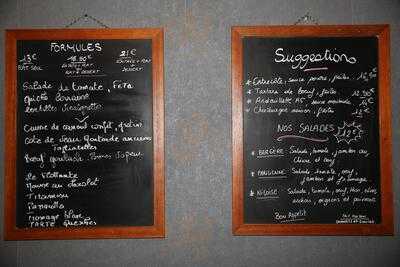 FORMULES
13€ 18.50€ 21€
PLAT SEUL ENTRÉE + PLAT ENTRÉE + PLAT
ou + DESSERT
PLAT + DESSERT
Salade de tomate, Feta
Quiche Lorraine
Lentilles
Cuisse de canard confit, gratin
Côte de veau Moutarde ancienne
Tagliatelles
Boeuf goulash, Pommes Vapeur
Ile Flottante
Mousse au chocolat
Tiramisu
Panacotta
Fromage blanc
TARTE QUETSCHES
Suggestions
Entrecôte, sauce poivre, frites. 16,90€
Tartare de boeuf, frites. 12,90€
Andouillette A5 sauce moutarde 15€
Cheeseburger maison, frites 13€
NOS SALADES
12€
BERGÈRE Salade, tomate, jambon cru,
Chèvre et oeuf
PARISIENNE Salade, tomate, oeuf,
jambon et fromage
NIÇOISE Salade, tomate, oeuf, thon, olives
anchois, oignons et poivrons
Bon Appétit